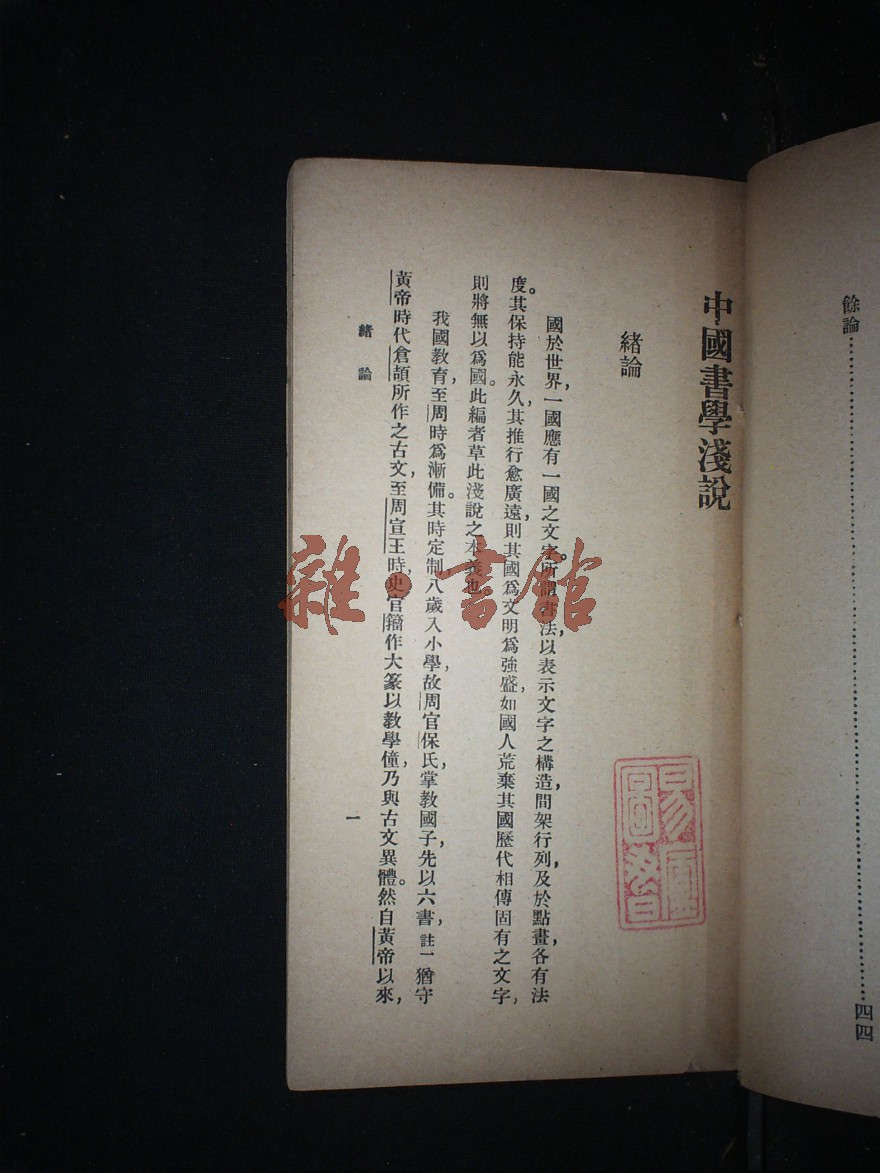 餘論……………………………………四四
中國書學淺說
緒論
國於世界，一國應有一國之文字。所謂書法，以表示文字之構造，間架行列，及於點畫，各有法
度。其保持能永久，其推行愈廣遠，則其國爲文明爲強盛，如國人荒棄其國歷代相傳固有之文字，
則將無以爲國。此編者草此淺說之本義也。
我國教育，至周時爲漸備。其時定制，八歲入小學，故周官保氏，掌教國子，先以六書，註一猶守
黃帝時代倉頡所作之古文，至周宣王時，史官籀作大篆以教學僮，乃與古文異體。然自黃帝以來，
緒論
一
雜·書館